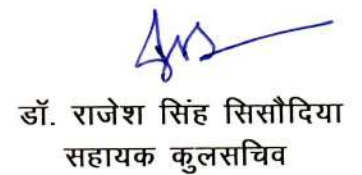 डॉ. राजेश सिंह सिसौदिया
सहायक कुलसचिव